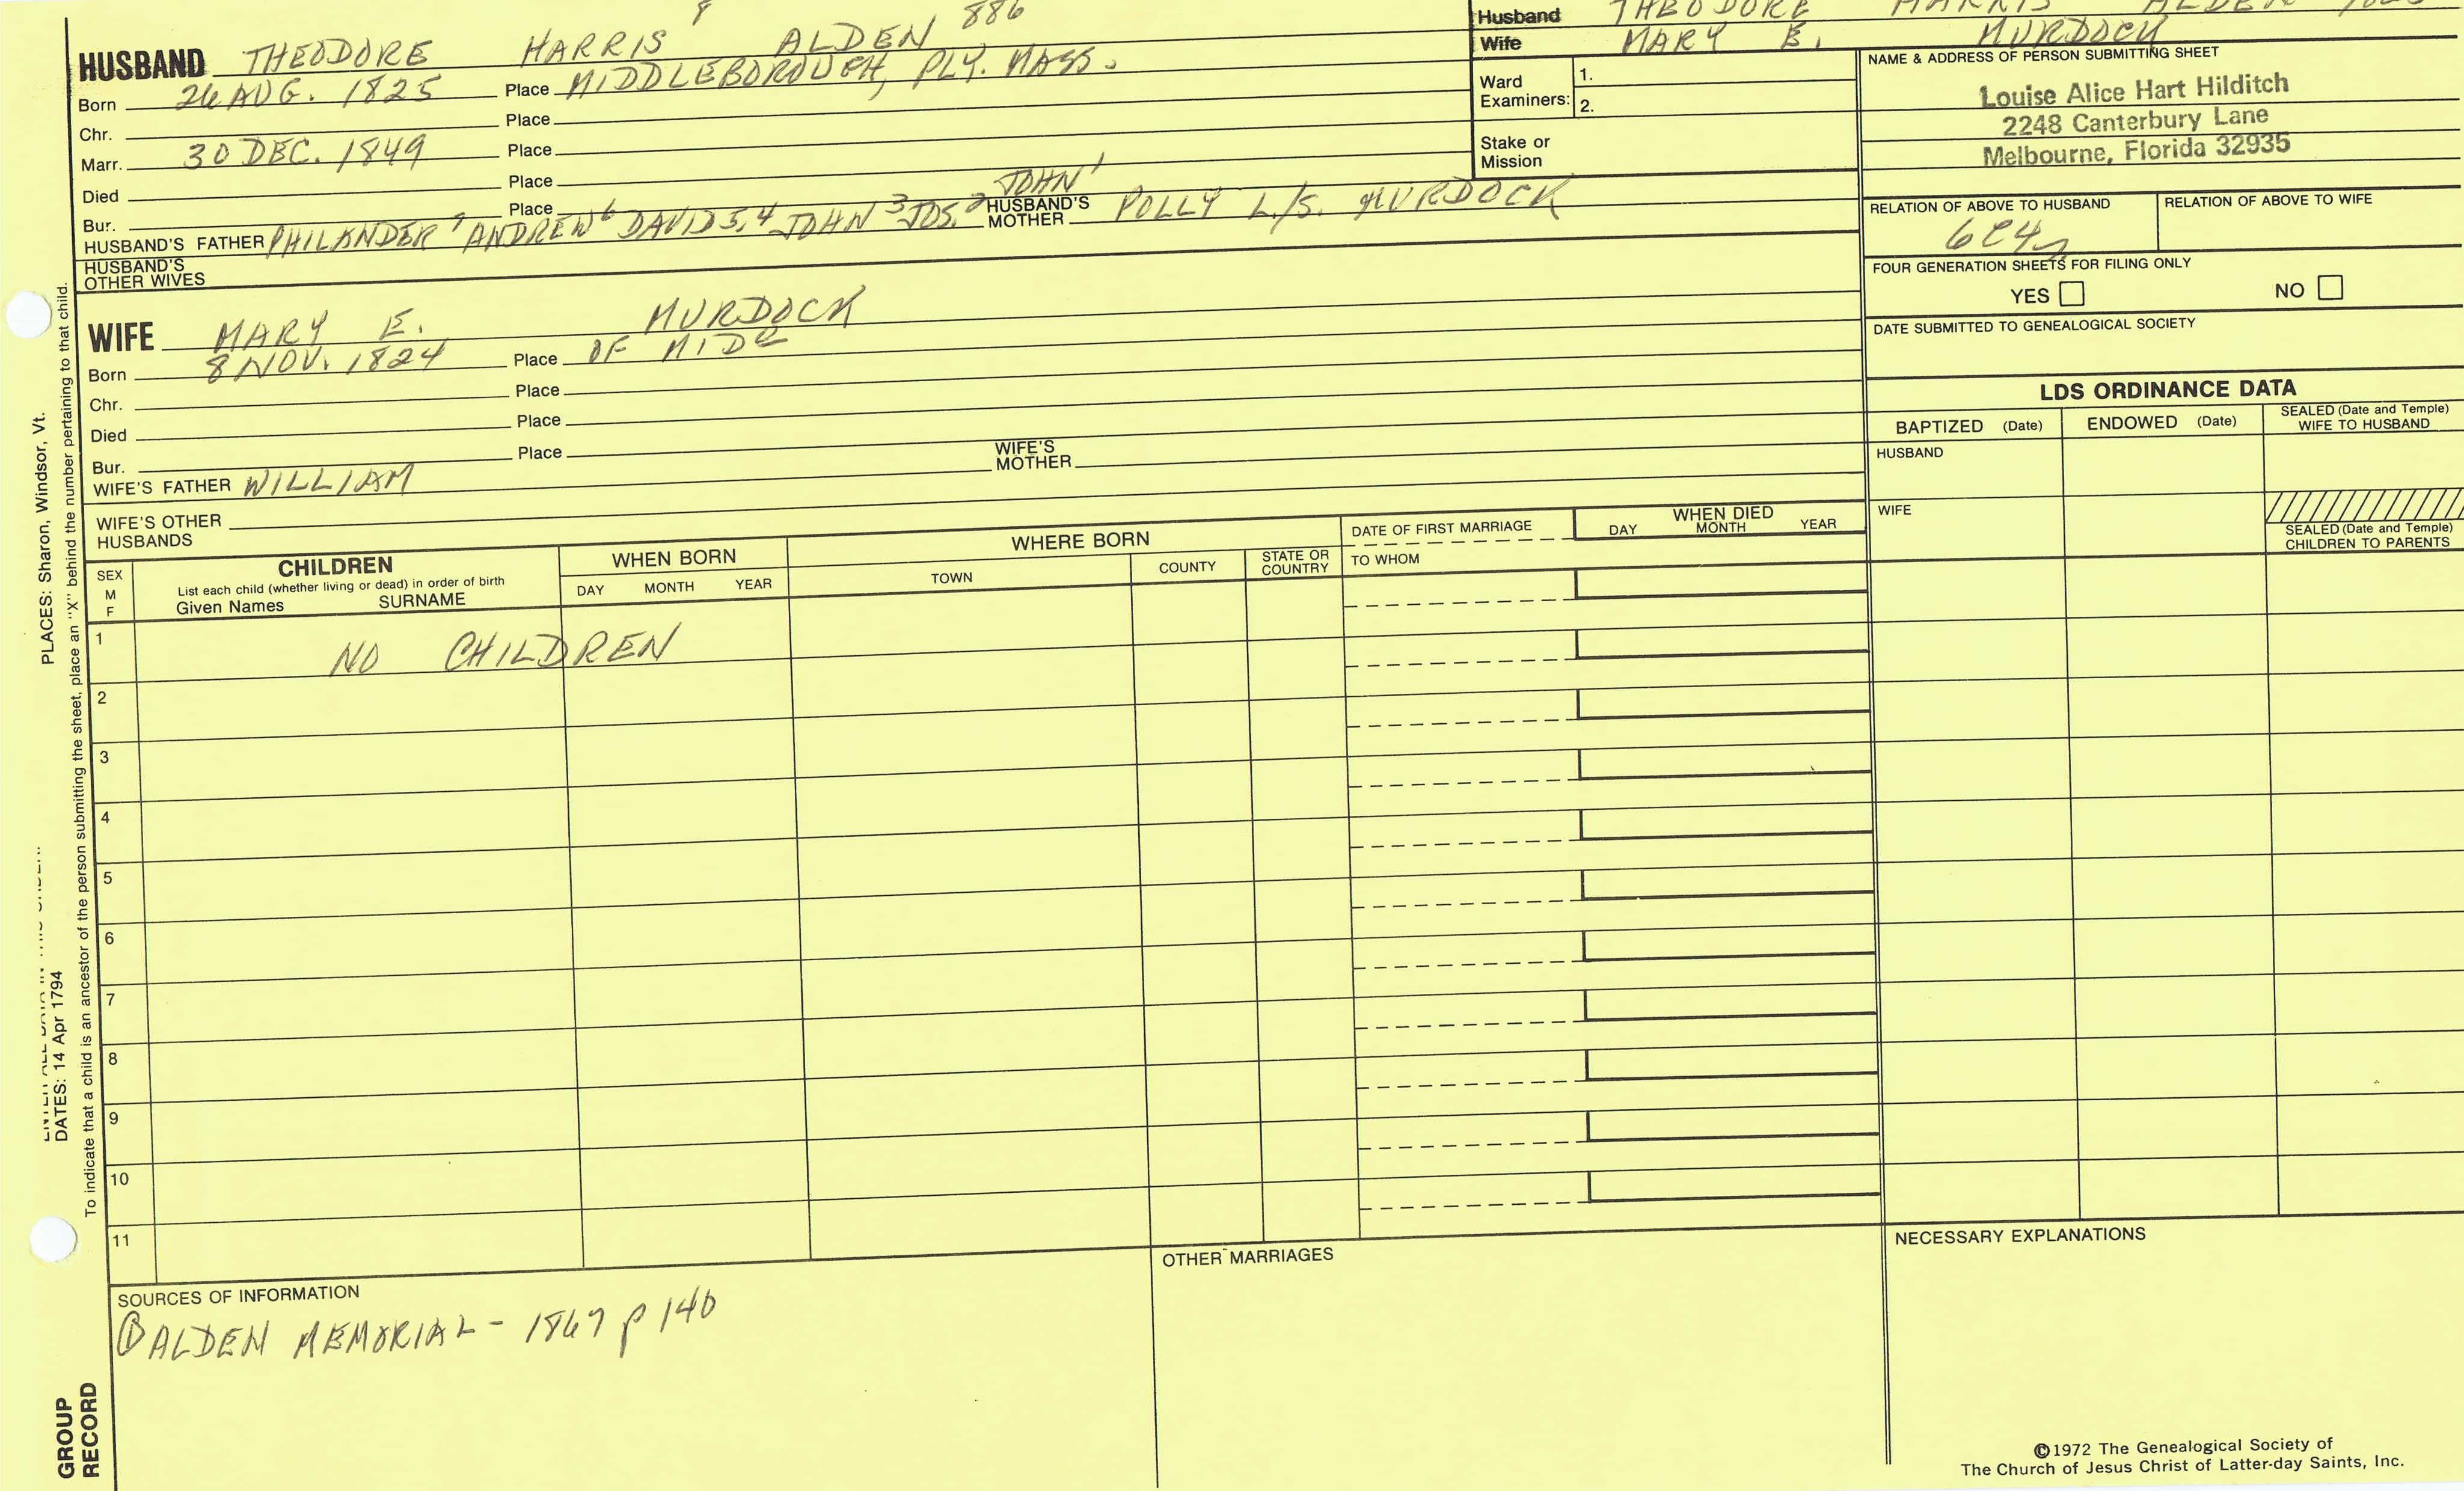 HUSBAND THEODORE HARRIS 8 ALDEN 886
Born 26 AUG. 1825 Place MIDDLEBOROUGH, PLY. MASS.
Chr. Place
Marr. 30 DEC. 1849 Place
Died Place
Bur. Place
HUSBAND'S FATHER PHILANDER 7 ANDREW 6 DAVID 5,4 JOHN 3 JOS. 2 JOHN 1 HUSBAND'S MOTHER POLLY L./S. MURDOCK
HUSBAND'S OTHER WIVES
WIFE MARY E. MURDOCK
Born 8 NOV. 1824 Place OF
Chr. Place
Died Place
Bur. Place
WIFE'S FATHER WILLIAM WIFE'S MOTHER
WIFE'S OTHER HUSBANDS
Husband THEODORE HARRIS ALDEN
Wife MARY E. MURDOCK
Ward Examiners: 1.
2.
Stake or Mission
NAME & ADDRESS OF PERSON SUBMITTING SHEET
Louise Alice Hart Hilditch
2248 Canterbury Lane
Melbourne, Florida 32935
RELATION OF ABOVE TO HUSBAND RELATION OF ABOVE TO WIFE
FOUR GENERATION SHEETS FOR FILING ONLY
YES NO
DATE SUBMITTED TO GENEALOGICAL SOCIETY
LDS ORDINANCE DATA
BAPTIZED (Date) ENDOWED (Date) SEALED (Date and Temple) WIFE TO HUSBAND
HUSBAND
WIFE
SEALED (Date and Temple) CHILDREN TO PARENTS
SEX M F
CHILDREN
List each child (whether living or dead) in order of birth
Given Names SURNAME
WHEN BORN
DAY MONTH YEAR
WHERE BORN
TOWN COUNTY STATE OR COUNTRY
DATE OF FIRST MARRIAGE
TO WHOM
WHEN DIED
DAY MONTH YEAR
1 NO CHILDREN
2
3
4
5
6
7
8
9
10
11
SOURCES OF INFORMATION
① ALDEN MEMORIAL - 1867 p 140
OTHER MARRIAGES
NECESSARY EXPLANATIONS
©1972 The Genealogical Society of
The Church of Jesus Christ of Latter-day Saints, Inc.
PLACES: Sharon, Windsor, Vt.
DATES: 14 Apr 1794
To indicate that a child is an ancestor of the person submitting the sheet, place an "X" behind the number pertaining to that child.
GROUP
RECORD